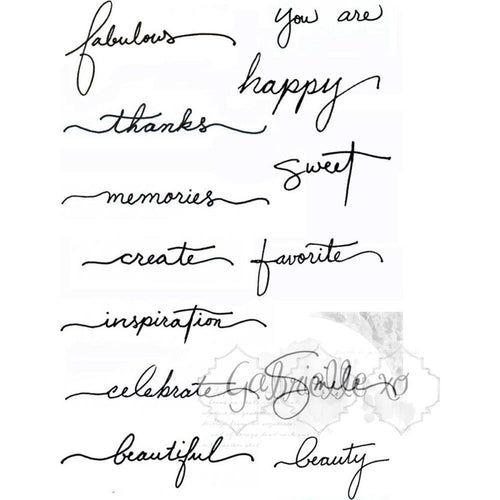 fabulous
you are
happy
thanks
sweet
memories
create
favorite
inspiration
celebrate
smile
xo
beautiful
beauty